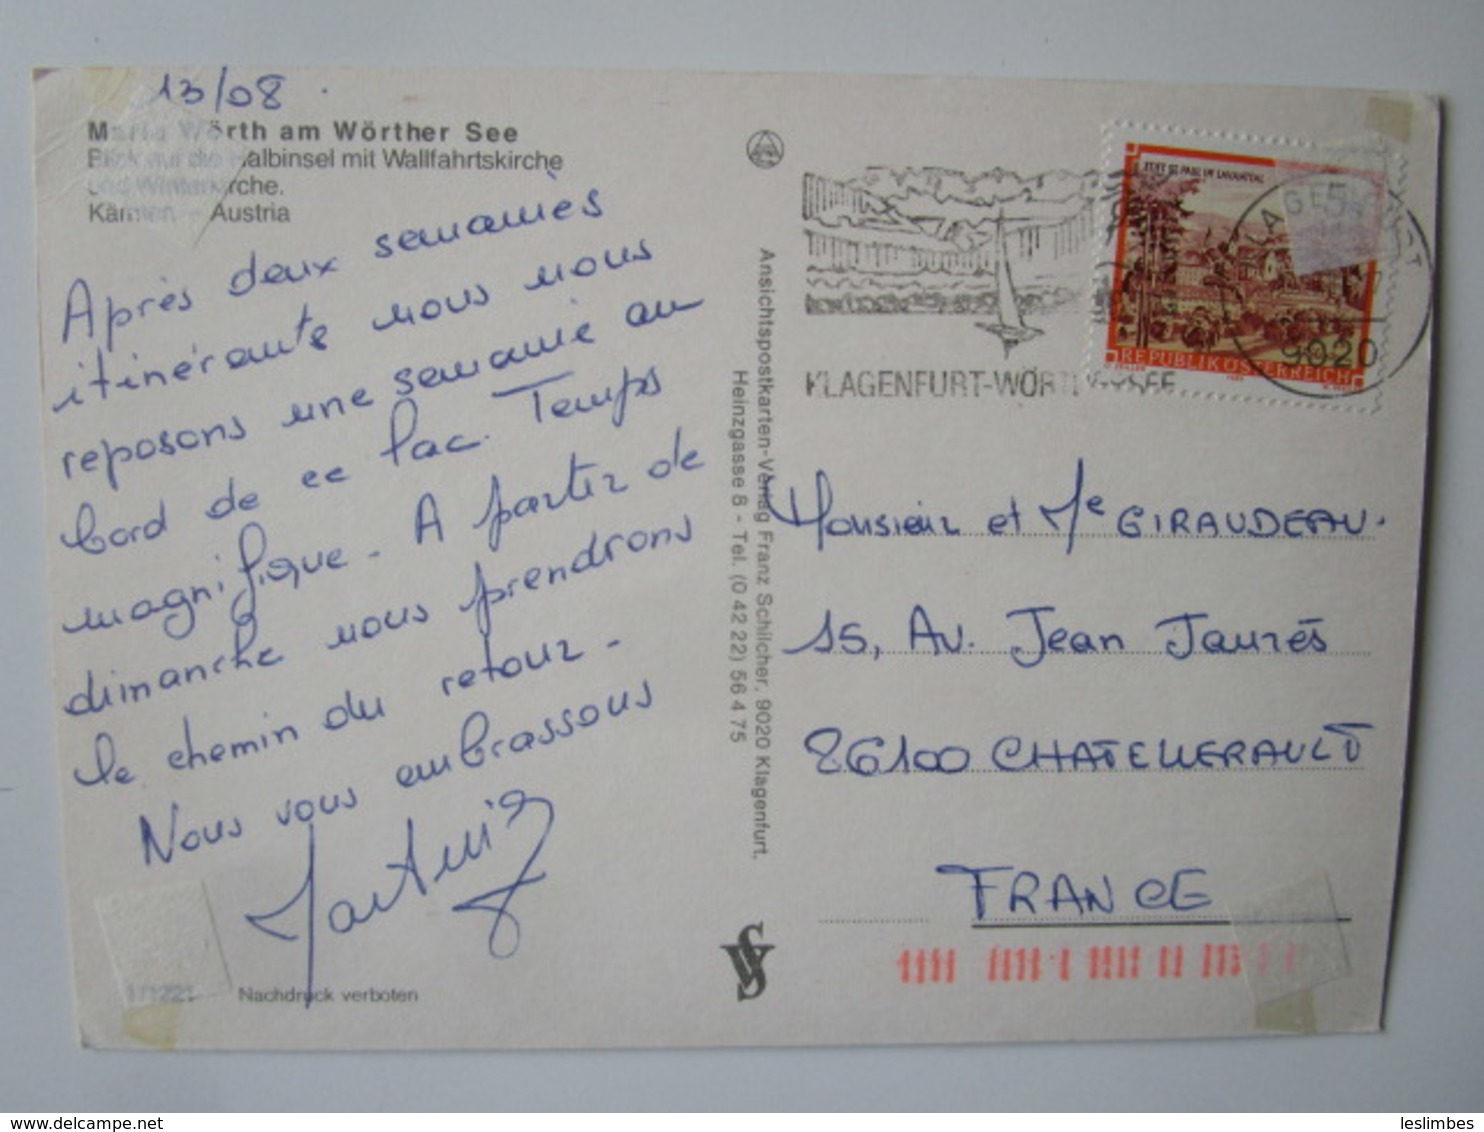 13/08
Maria Wörth am Wörther See
Blick auf die Halbinsel mit Wallfahrtskirche
und Winterkirche.
Kärnten – Austria
Après deux semaines
itinérante nous nous
reposons une semaine au
bord de ce lac. Temps
magnifique. A partir de
dimanche nous prendrons
le chemin du retour.
Nous vous embrassons
Nachdruck verboten
Ansichtspostkarten-Verlag Franz Schilcher, 9020 Klagenfurt,
Heinzgasse 8 - Tel. (0 42 22) 56 4 75
KLAGENFURT-WÖRTHERSEE
STIFT ST. PAUL IM LAVANTTAL
5
REPUBLIK ÖSTERREICH
KLAGENFURT
9020
Monsieur et Me GIRAUDEAU.
15, Av. Jean Jaurès
86100 CHATELLERAULT
FRANCE
leslimbes